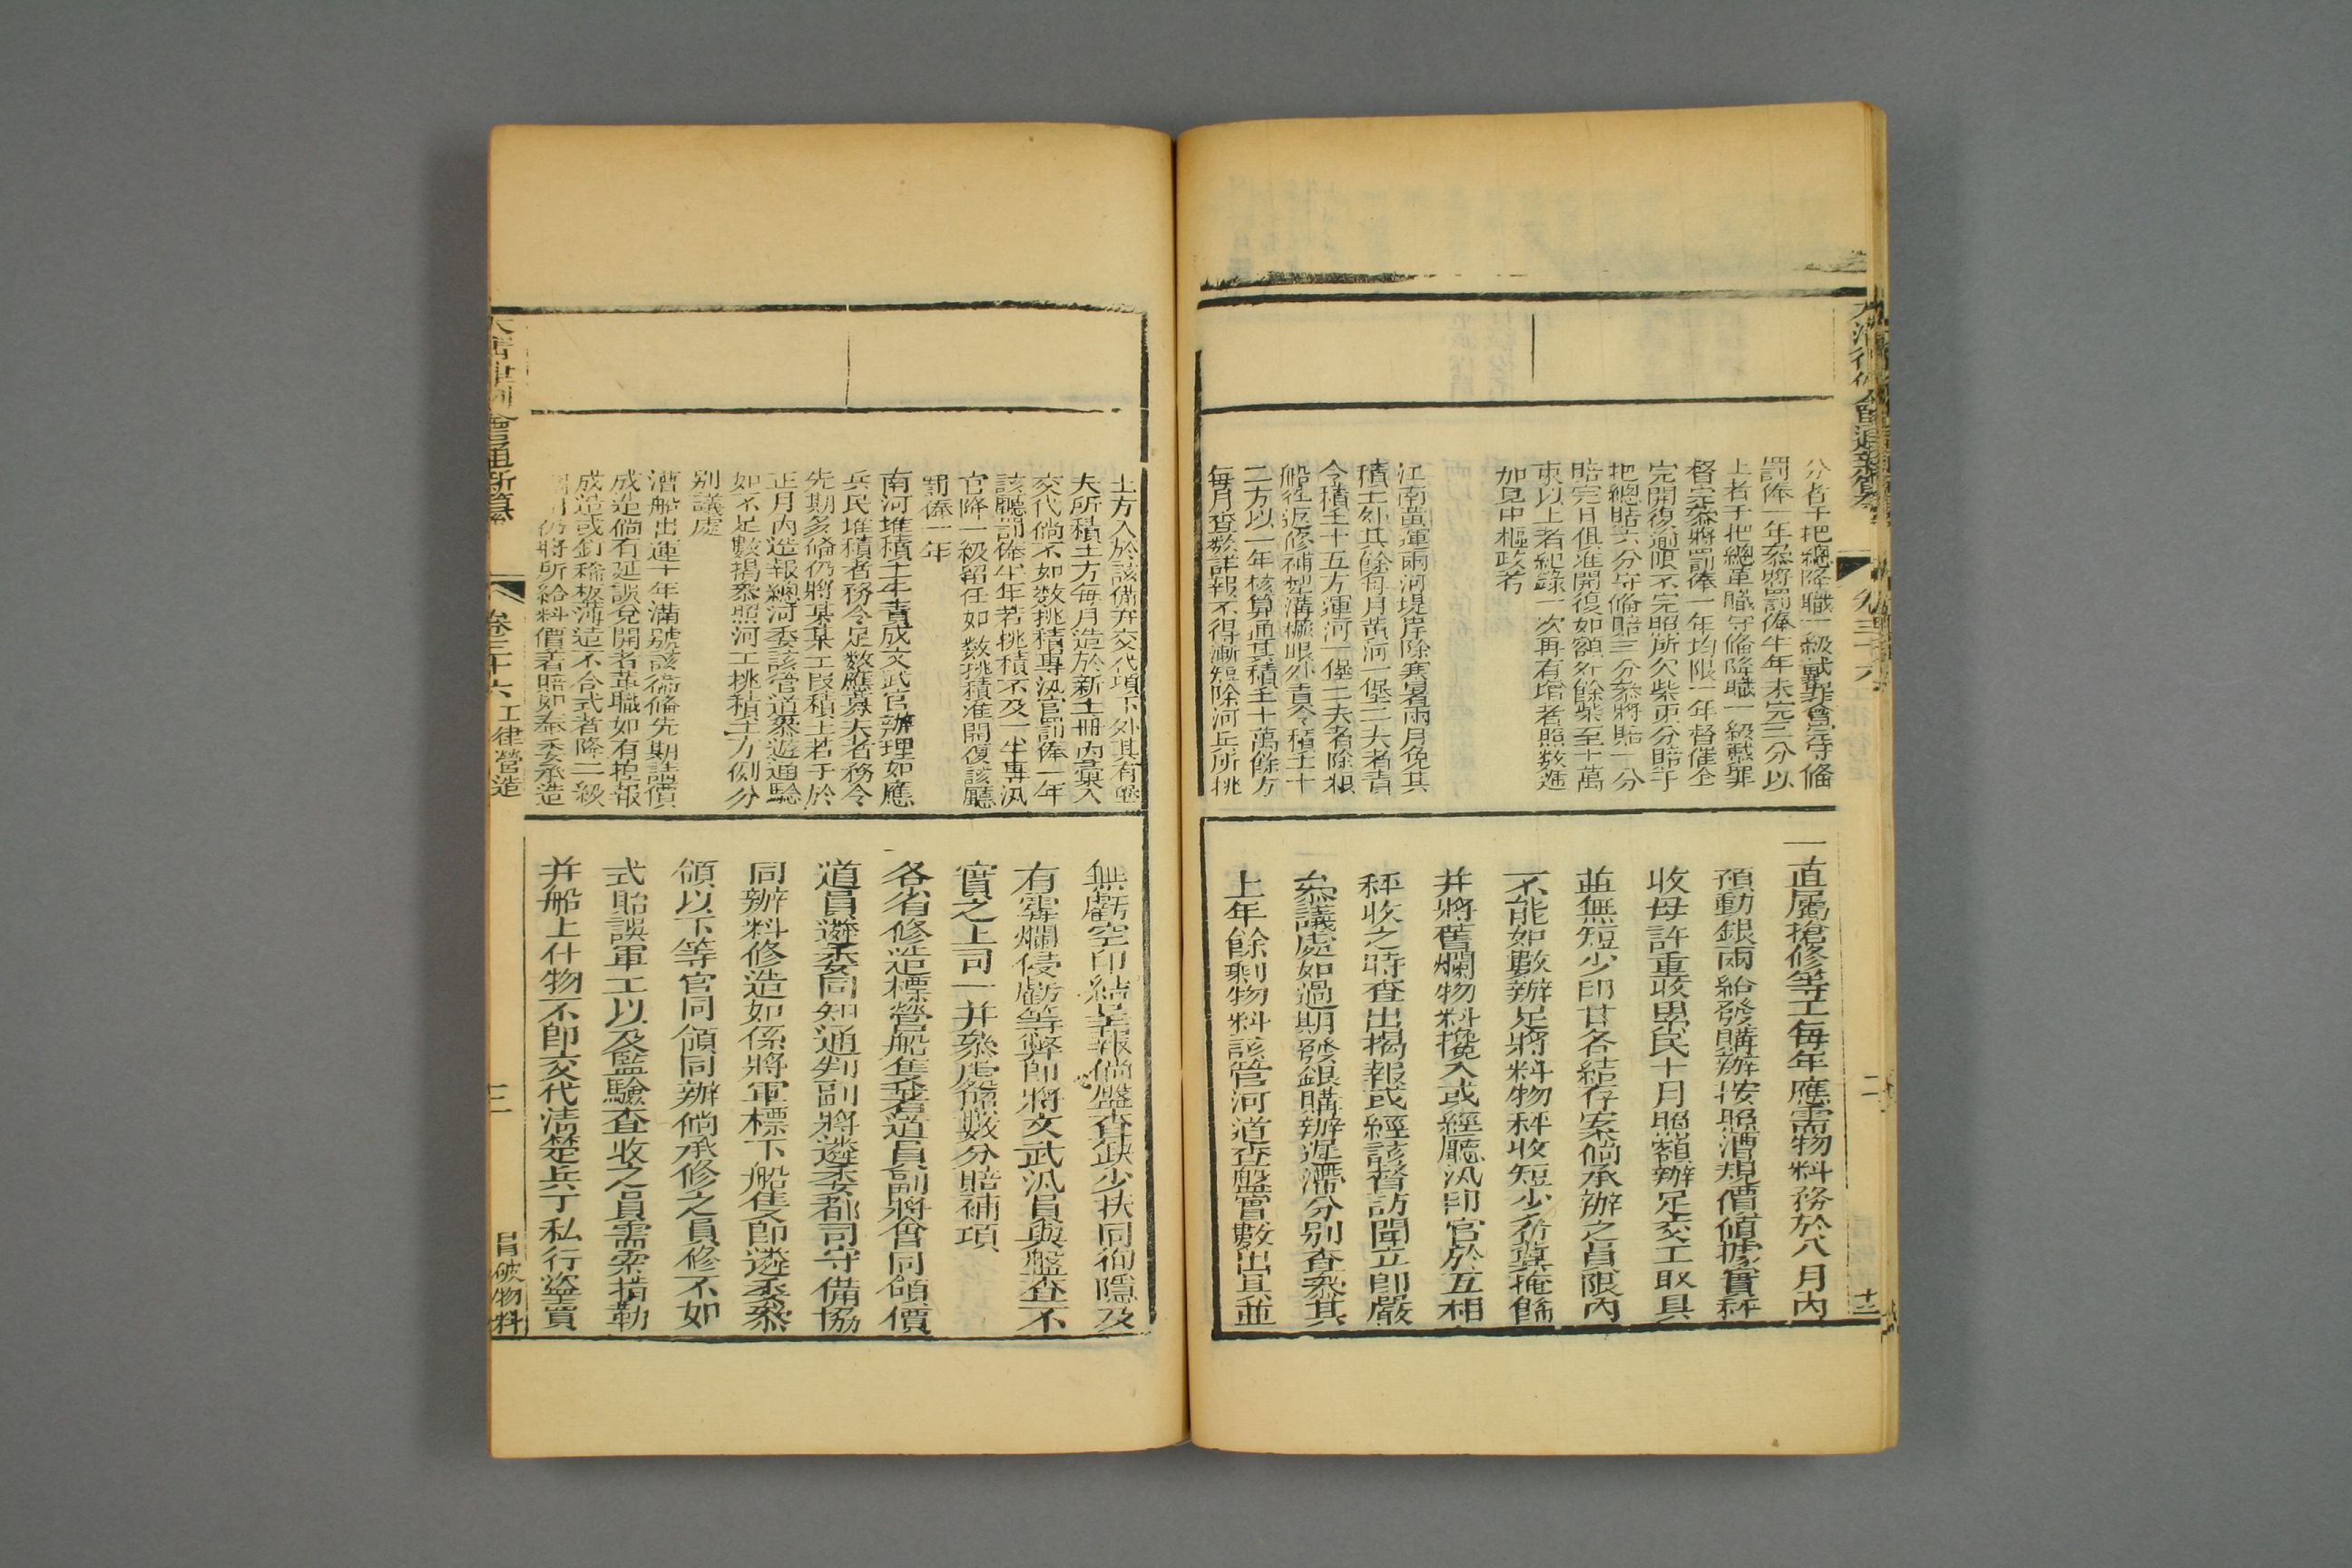 分者千把總降職一級戴罪督完守備
罰俸一年叅將罰俸半年未完三分以
上者千把總革職守備降職一級戴罪
督完叅將罰俸一年均限一年督催全
完開復逾限不完照所欠柴束分賠千
把總賠六分守備賠三分叅將賠一分
賠完日俱准開復如額外餘柴至十萬
束以上者紀錄一次再有增者照數遞
加見中樞政考
江南黃運兩河堤岸除寒暑雨月免其
積土外其餘每月黃河一堡二夫者責
令積土十五方運河一堡二夫者除糧
船往返修補犁溝獾眼外責令積土十
二方以一年核算通共積土十萬餘方
每月查驗詳報不得漸短除河兵所挑
一直屬搶修等工每年應需物料務於八月內
預動銀兩給發購辦按照漕規價值據實秤
收毋許重收累民十月照額辦足交工取具
並無短少印甘各結存案倘承辦之員限內
不能如數辦足將料物秤收短少希冀掩飾
并將舊爛物料攙入或經廳汛印官於互相
秤收之時查出揭報或經該督訪聞立即嚴
叅議處如過期發銀購辦遲滯分別查叅其
上年餘剩物料該管河道查盤實數出具並
土方入於該備弁交代項下外其有堡
夫所積土方每月造於新土冊內彙入
交代倘不如數挑積專汛官罰俸一年
該廳罰俸半年若挑積不及一半專汛
官降一級留任如數挑積准開復該廳
罰俸一年
南河堆積土牛責成文武官辦理如應
兵民堆積者務令足數應募夫者務令
先期多備仍將某某工段積土若干於
正月內造報總河委該管道叅遊通驗
如不足數揭叅照河工挑積土方例分
別議處
漕船出運十年滿號該衛備先期請價
成造倘有延誤兌開者革職如有捏報
成造或釘稀板薄造不合式者降二級
仍將所給料價著賠如叅委承造
無虧空印結呈報倘盤查缺少扶同徇隱及
有霉爛侵虧等弊即將文武汛員與盤查不
實之上司一并叅處繇數分賠補項
各省修造標營船隻委着道員副將會同領價
道員遴委同知通判副將遴委都司守備協
同辦料修造如係將軍標下船隻即遴委叅
領以下等官同領同辦倘承修之員修不如
式貽誤軍工以及監驗查收之員需索掯勒
并船上什物不即交代清楚兵丁私行盜買
大清律例會通新纂
卷三十六工律營造
三
冒破物料